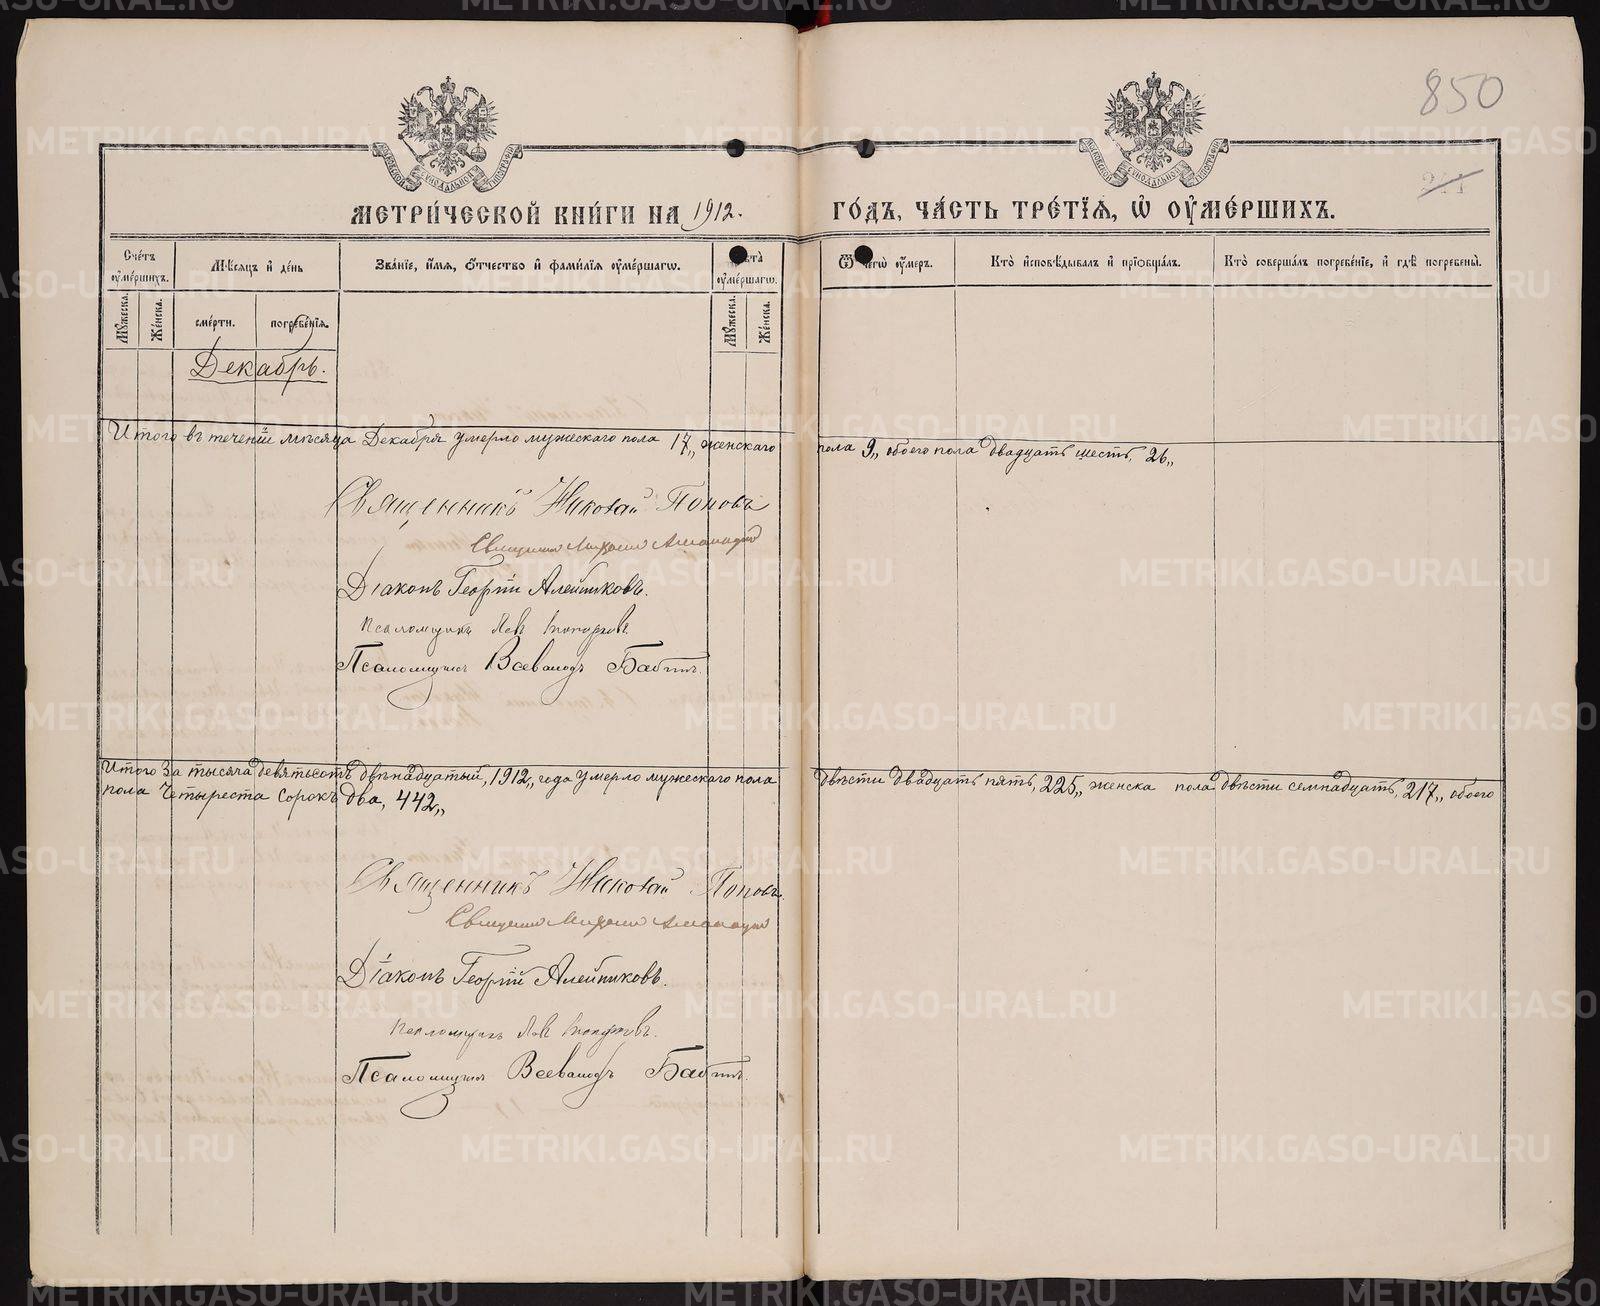 850
МЕТРИ́ЧЕСКОЙ КНИ́ГИ НА 1912.
ГО́ДЪ, ЧА́СТЬ ТРЕ́ТІѦ, Ѡ҆ ОУ҆МЕ́РШИХЪ.
Сче́тъ оу҆ме́ршихъ.
Мѣ́сѧцъ и҆ де́нь
Зва́нїе, и҆́мѧ, ѻ҆́тчество и҆ фами́лїѧ оу҆ме́ршагѡ.
оу҆ме́ршагѡ.
Ѿ чегѡ̀ оу҆́меръ.
Кто̀ и҆сповѣ́дывалъ и҆ прїѻбща́лъ.
Кто̀ соверша́лъ погребе́нїе, и҆ гдѣ̀ погребены̀.
Мꙋ́жеска.
Же́нска.
сме́рти.
погребе́нїѧ.
Мꙋ́жеска.
Же́нска.
Декабрь.
Итого въ теченіи мѣсяца Декабря умерло мужескаго пола 17„ женскаго пола 9„ обоего пола двадцать шесть, 26„
Священникъ Николай Поповъ
Священникъ Михаилъ
Діаконъ Георгій Алейниковъ.
Псаломщикъ Левъ Топорковъ.
Псаломщикъ Всеволодъ Бабинъ.
Итого За тысяча девятьсотъ двѣнадцатый, 1912„ года умерло мужескаго пола двѣсти двадцать пять, 225„ женска пола двѣсти семнадцать, 217„ обоего
пола Четыреста сорокъ два, 442„
Священникъ Николай Поповъ
Священникъ Михаилъ
Діаконъ Георгій Алейниковъ.
Псаломщикъ Левъ Топорковъ.
Псаломщикъ Всеволодъ Бабинъ.
METRIKI.GASO-URAL.RU